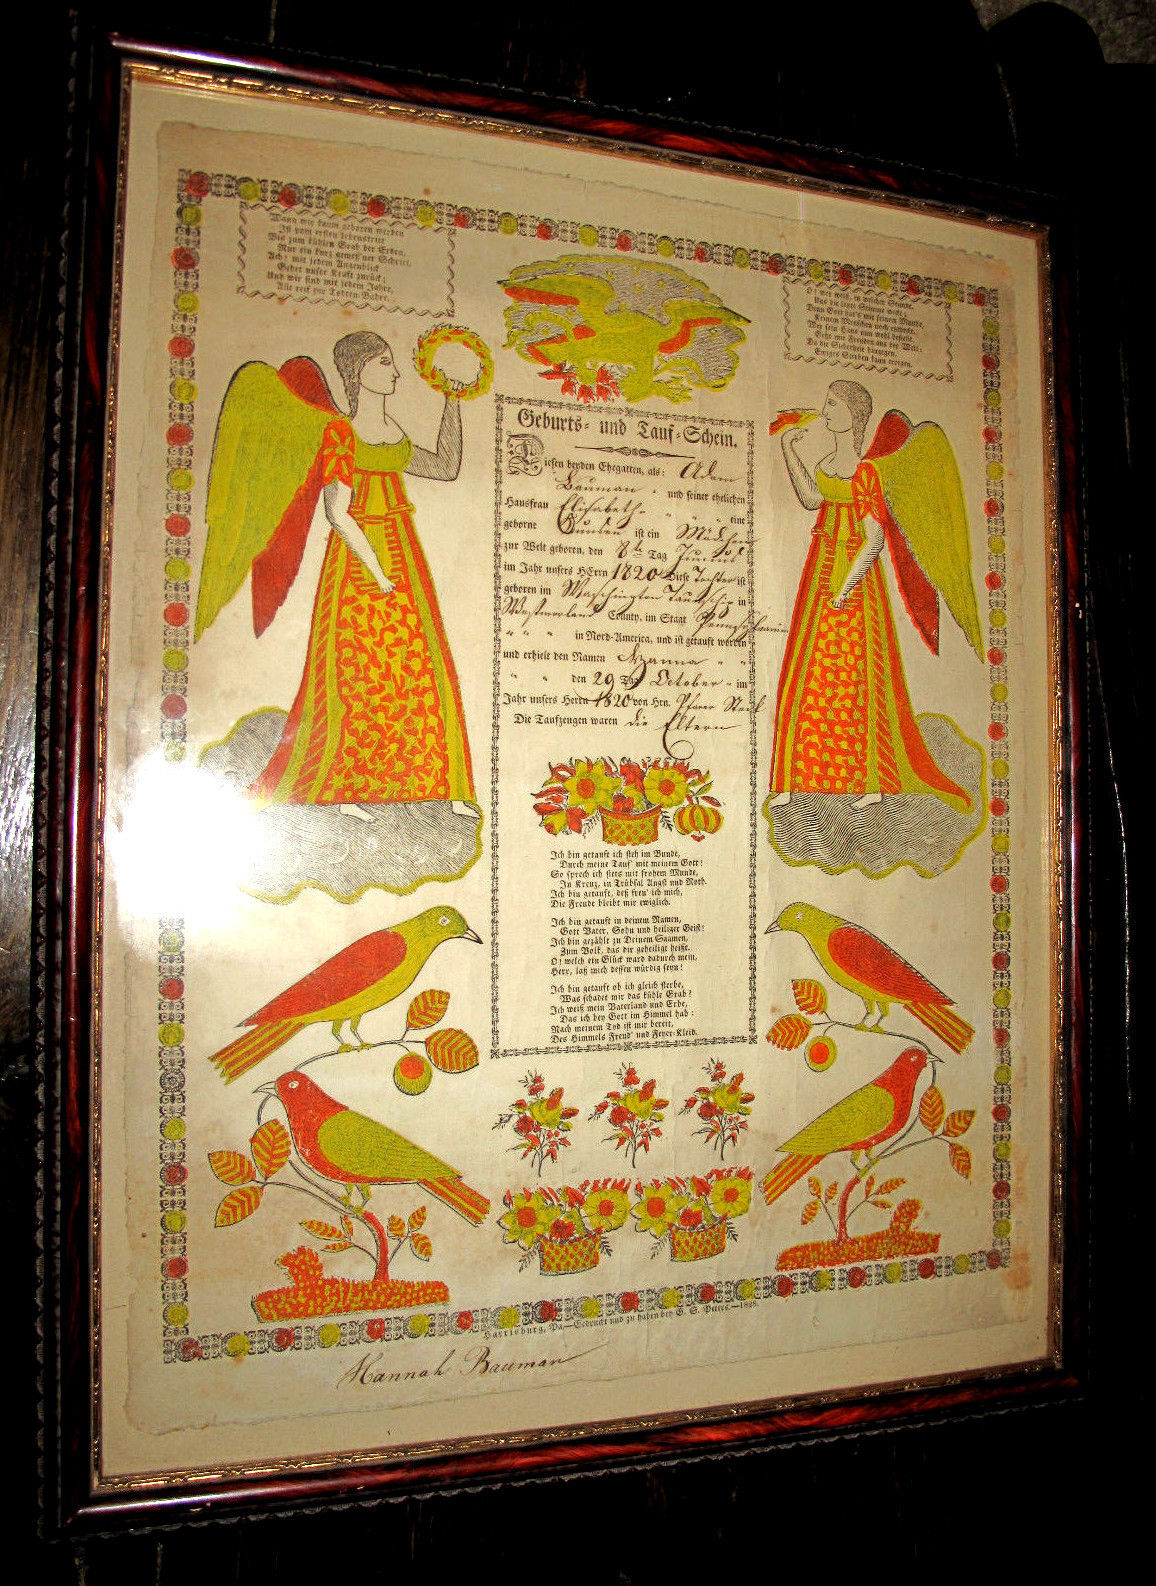 Wann wir kaum geboren werden
Ist vom ersten Lebenstritt
Bis zum kühlen Grab der Erden,
Nur ein kurz gemeß'ner Schritt.
Ach! mit jedem Augenblick
Gehet unser Kraft zurück;
Und wir sind mit jedem Jahre,
Alle reif zur Todten-Bahre.
O! wer weiß, in welcher Stunde,
Uns die letzte Stimme weckt;
Denn Gott hat's mit seinem Munde,
Keinem Menschen noch entdeckt.
Wer sein Haus nun wohl bestellt,
Geht mit Freuden aus der Welt;
Da die Sicherheit hingegen,
Ewiges Sterben kann erregen.
Geburts- und Tauf-Schein.
Diesen beyden Ehegatten, als: Adam
Bauman und seiner ehelichen
Hausfrau Elisabeth " " " eine
geborne ist ein Mädchen
zur Welt geboren, den 8te Tag
im Jahr unsers HErrn 1820 Diese Tochter ist
geboren im Waschington Taunschip in
Westmorland County, im Staat Pennsylvanien
" " " in Nord-America, und ist getauft worden
und erhielt den Namen " "
" " den 29 Tag October " im
Jahr unsers Herrn 1820 von Hrn. Pfarer
Die Taufzeugen waren die Eltern
Ich bin getauft ich steh im Bunde,
Durch meine Tauf' mit meinem Gott!
So sprech ich stets mit frohem Munde,
In Kreuz, in Trübsal Angst und Noth.
Ich bin getauft, deß freu' ich mich,
Die Freude bleibt mir ewiglich.
Ich bin getauft in deinem Namen,
Gott Vater, Sohn und heiliger Geist!
Ich bin gezählt zu Deinem Saamen,
Zum Volk, das dir geheiligt heißt.
O! welch ein Glück ward dadurch mein,
Herr, laß mich dessen würdig seyn!
Ich bin getauft ob ich gleich sterbe,
Was schadet mir das kühle Grab?
Ich weiß mein Vaterland und Erbe,
Das ich bey Gott im Himmel hab:
Nach meinem Tod ist mir bereit,
Des Himmels Freud' und Feyer-Kleid.
Harrisburg, Pa.—Gedruckt und zu haben bey G. S. Peters.—1828.
Hannah Bauman